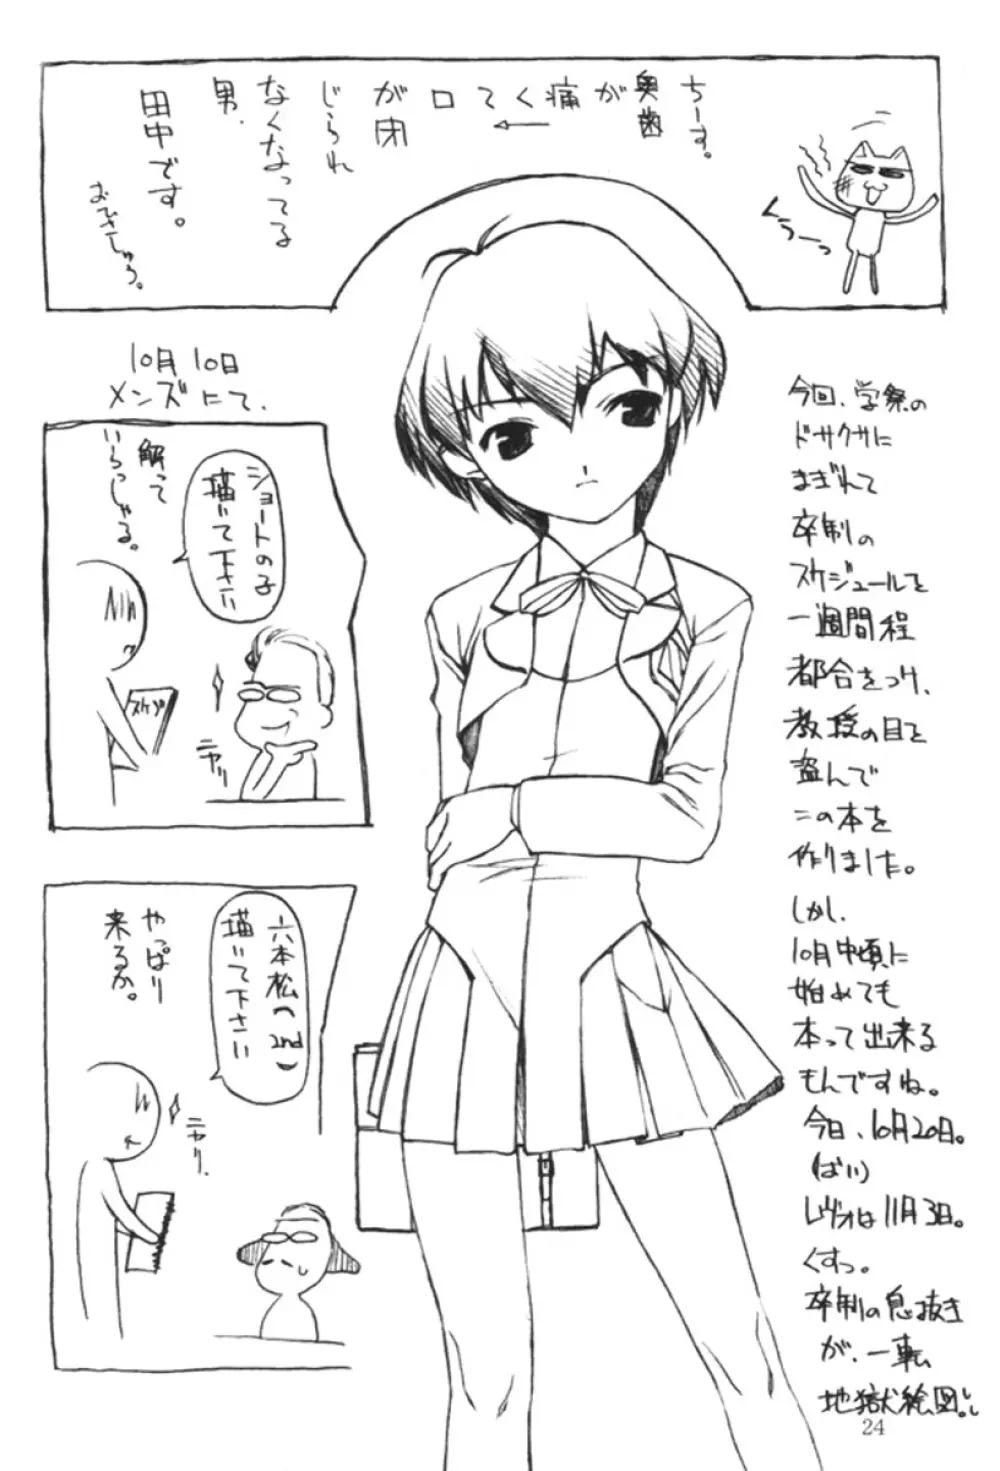 ちーす。
奥歯
が痛くて口が閉
じられ
なくなってる
男、
田中です。
おひさしゅう。
くうーっ
10月10日
メンズにて、
ショートの子
描いて下さい
解って
いらっしゃる。
スケブ
ニヤリ
六本松(2nd)
描いて下さい
やっぱり
来るか。
ニヤリ.
今回、学祭の
ドサクサに
まぎれて
卒制の
スケジュールを
一週間程
都合をつけ、
教授の目を
盗んで
この本を
作りました。
しかし、
10月中頃に
始めても
本って出来る
もんですね。
今日、10月20日。
(ばい)
レヴォは11月3日。
くすっ。
卒制の息抜き
が、一転
地獄絵図。
24